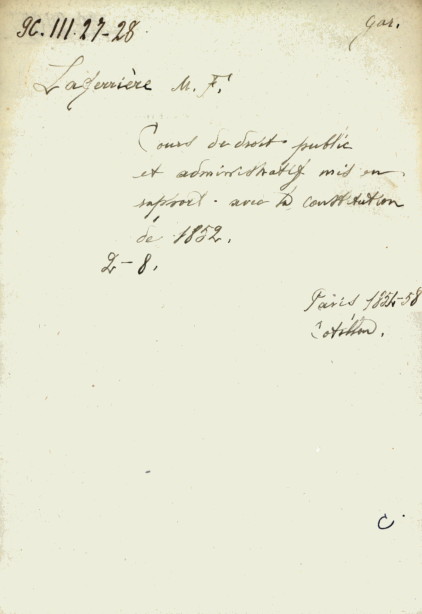 9C.III.27-28
gar.
Laferrière M. F.
Cours de droit public
et administratif mis en
rapport avec la constitution
de 1852.
2-8.
Paris 1854-58
Cotillon.
C.